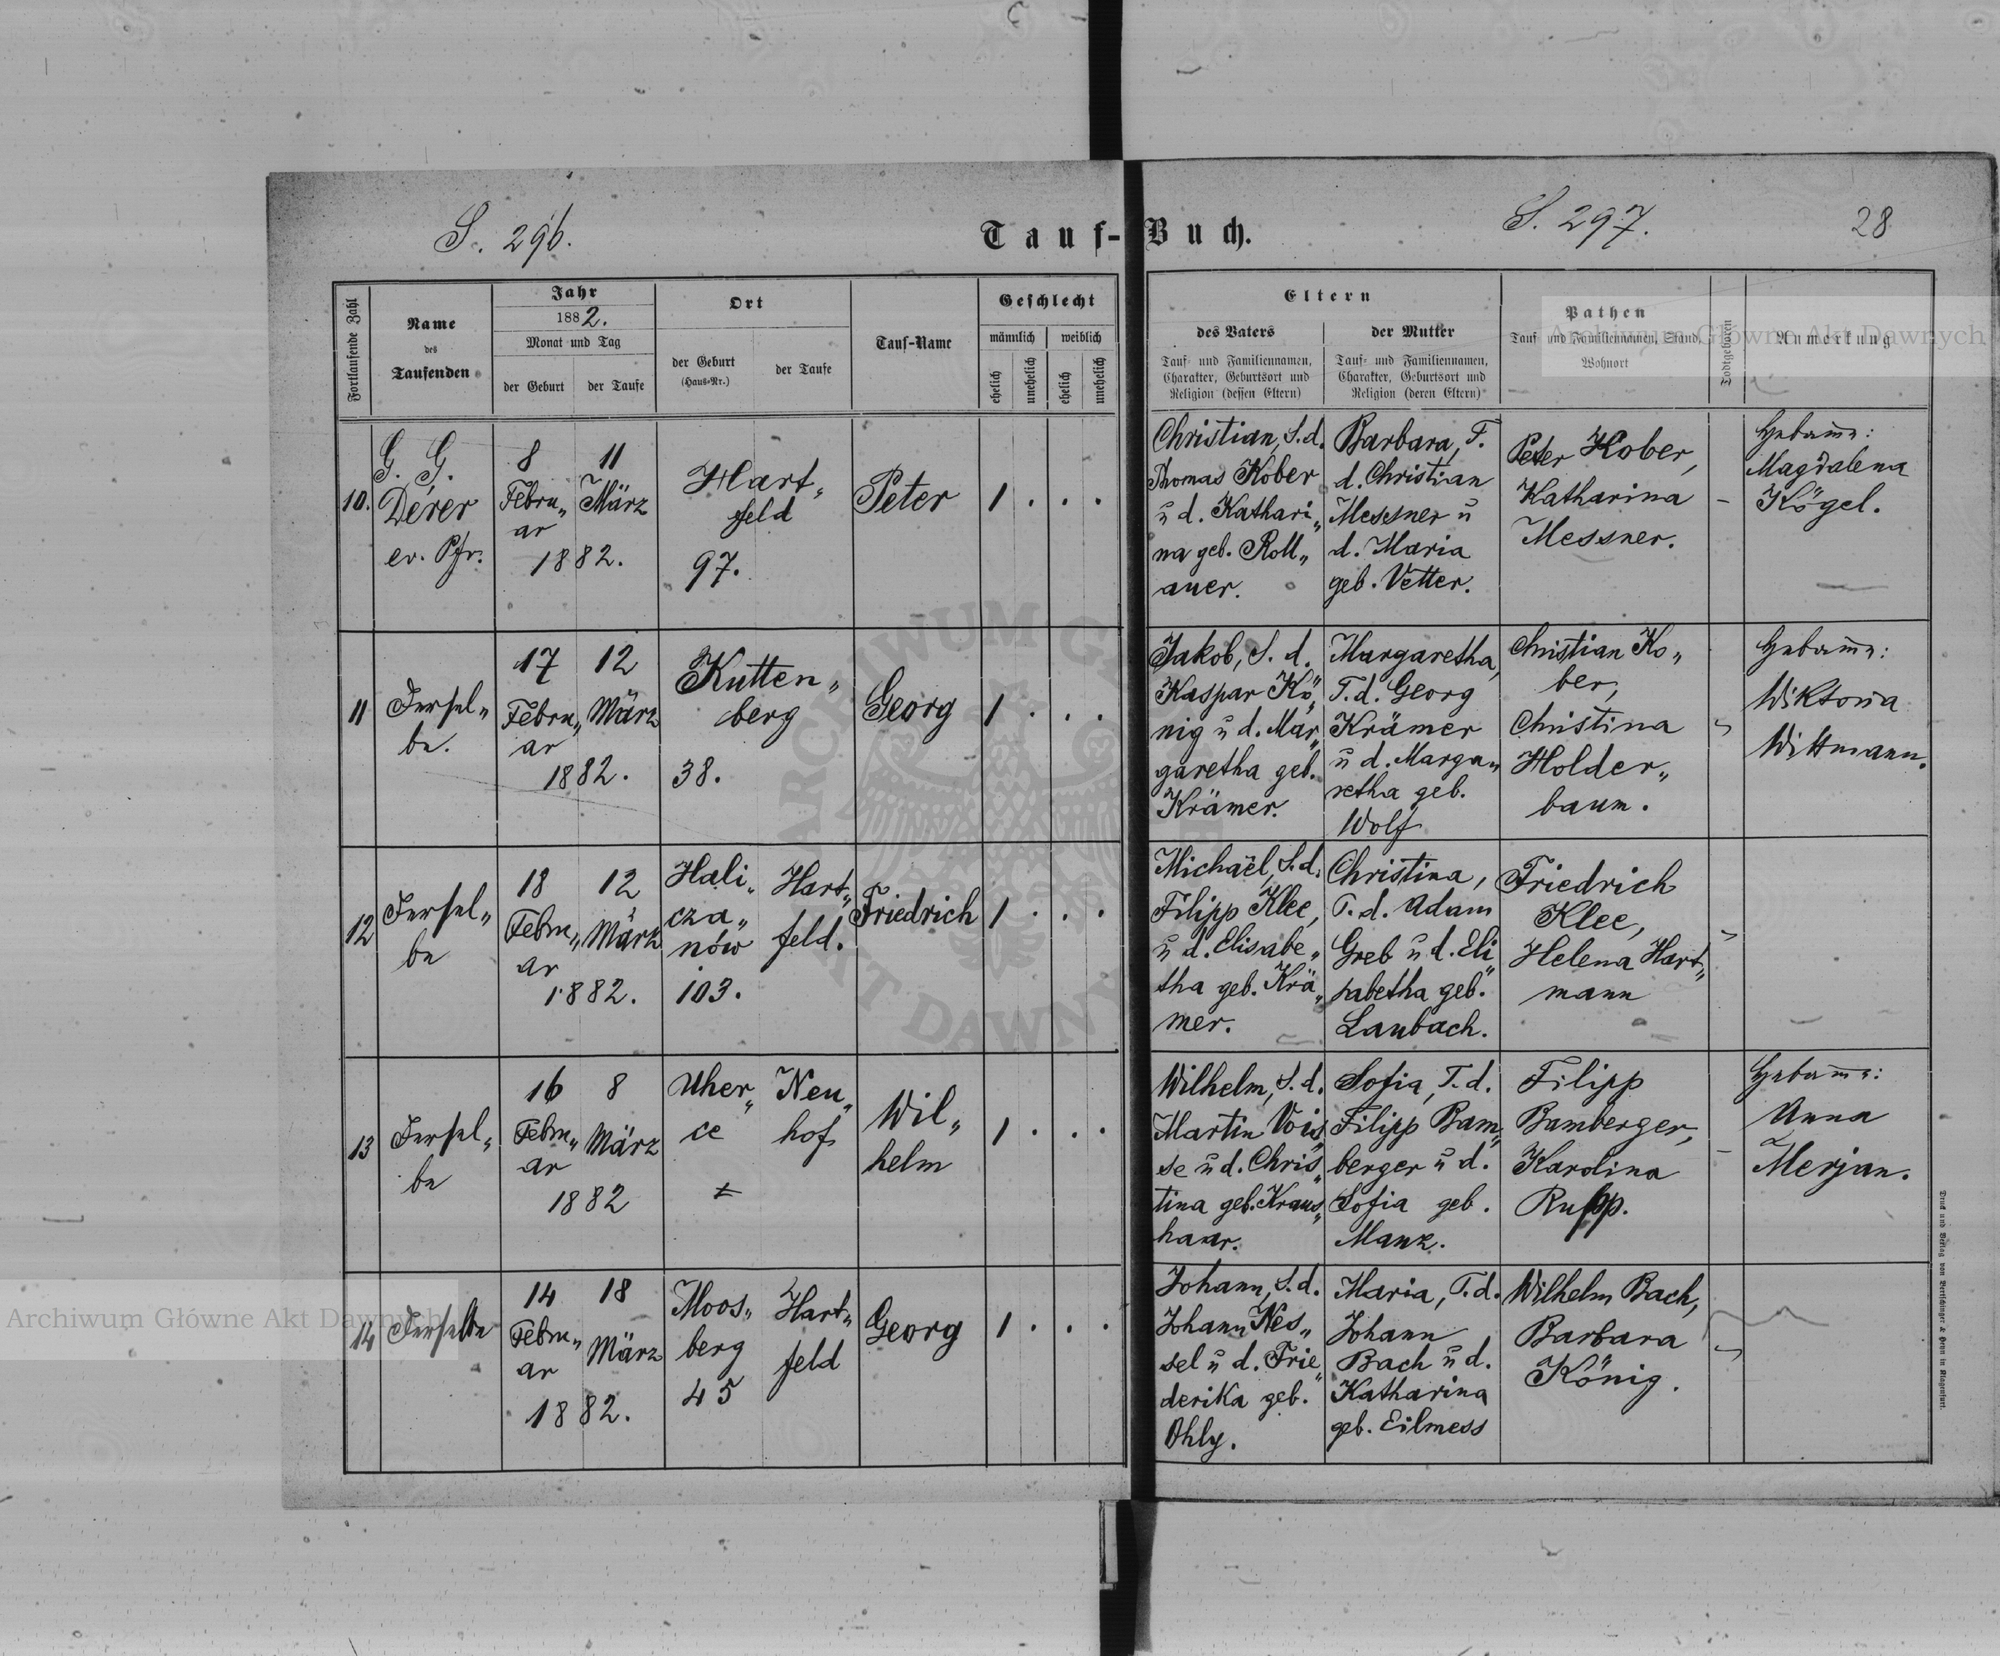 S. 296.
Tauf-Buch.
S. 297.
28
Fortlaufende Zahl
Name
des
Taufenden
Jahr
1882.
Monat und Tag
der Geburt
der Taufe
Ort
der Geburt
(Haus-Nr.)
der Taufe
Tauf-Name
Geschlecht
männlich
weiblich
ehelich
unehelich
ehelich
unehelich
Eltern
des Vaters
Tauf- und Familiennamen,
Charakter, Geburtsort und
Religion (dessen Eltern)
der Mutter
Tauf- und Familiennamen,
Charakter, Geburtsort und
Religion (deren Eltern)
Pathen
Tauf- und Familiennamen, Stand,
Wohnort
Todtgeboren
Anmerkung
10.
G. G.
Dérer
ev. Pfr.
8
Febru„
ar
11
März
1882.
Hart„
feld
97.
Peter
1 . . .
Christian, S. d.
Thomas Kober
u d. Kathari„
na geb. Roll„
auer.
Barbara, T.
d. Christian
Messner u
d. Maria
geb. Vetter.
Peter Kober,
Katharina
Messner.
–
Hebamme:
Magdalena
Kögel.
11
Dersel„
be.
17
Febru„
ar
12
März
1882.
Kutten„
berg
38.
Georg
1 . . .
Jakob, S. d.
Kaspar Kö„
nig u d. Mar„
garetha geb.
Krämer.
Margaretha,
T. d. Georg
Krämer
u d. Marga„
retha geb.
Wolf
Christian Ko„
ber,
Christina
Holder„
baum.
„
Hebamme:
Wiktoria
Wittmann.
12
Dersel„
be
18
Febru„
ar
12
März
1882.
Hali„
cza„
nów
103.
Hart„
feld.
Friedrich
1 . . .
Michael, S. d.
Filipp Klee,
u d. Elisabe„
tha geb. Krä„
mer.
Christina,
T. d. Adam
Greb u d. Eli„
sabetha geb.
Laubach.
Friedrich
Klee,
Helena Hart„
mann
„
13
Dersel„
be
16
Febru„
ar
8
März
1882
Uher„
ce
Neu„
hof
Wil„
helm
1 . . .
Wilhelm, S. d.
Martin Vois„
se u d. Chris„
tina geb. Kraus„
haar.
Sofia, T. d.
Filipp Bam„
berger u d.
Sofia geb.
Manz.
Filipp
Bamberger,
Karolina
Rupp.
–
Hebamme:
Anna
Merjan.
14
Derselbe
14
Febru„
ar
18
März
1882.
Moos„
berg
45
Hart„
feld
Georg
1 . . .
Johann, S. d.
Johann Nes„
sel u d. Frie„
derika geb.
Ohly.
Maria, T. d.
Johann
Bach u d.
Katharina
geb. Eilmess
Wilhelm Bach,
Barbara
König.
„
Druck und Verlag von Bertschinger & Heyn in Klagenfurt.
Archiwum Główne Akt Dawnych
Archiwum Główne Akt Dawnych
ARCHIWUM G
AKT DAWNY